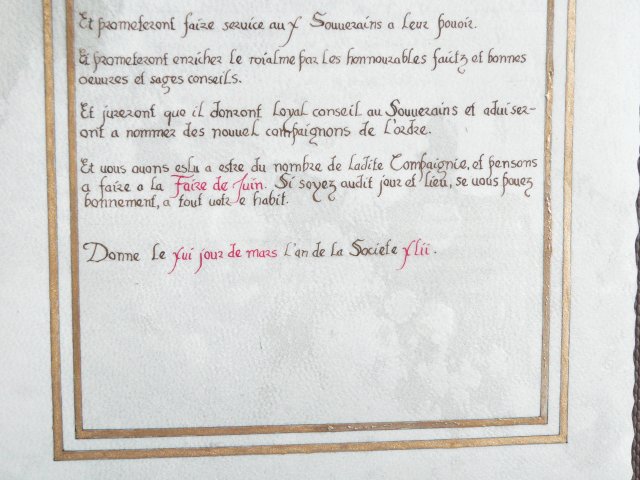 Et prometeront faire service au x Souverains a leur pouoir.
Et prometeront enricher le roialme par les honnourables faictz et bonnes
oeuvres et sages conseils.
Et jureront que il donront loyal conseil au Souverains et aduiser-
ont a nommez des nouvel campaignons de L'ordre.
Et vous avons eslu a estre du nombre de ladite Compaignie, et pensons
a faire a la Faire de Juin. Si soyez audit jour et lieu, se vous pouez
bonnement, a tout votre habit.
Donne le xvi jour de mars L'an de la Societe xlii.